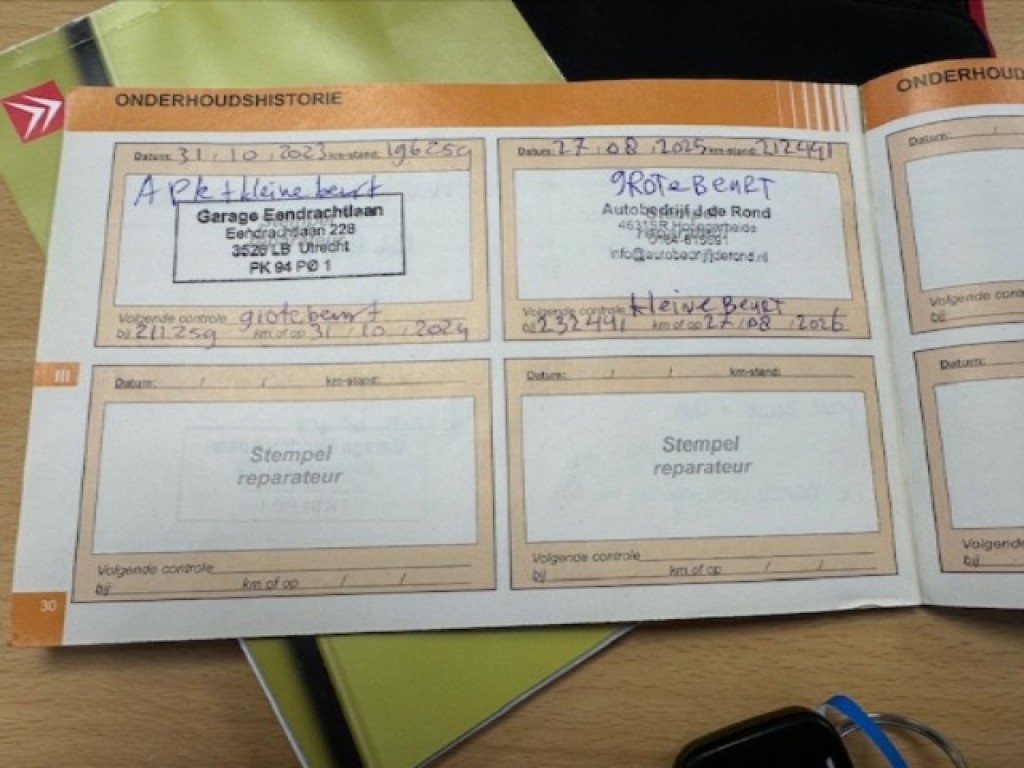 ONDERHOUDSHISTORIE
Datum: 31 / 10 / 2023 km-stand: 196259
APK + kleine beurt
Garage Eendrachtlaan
Eendrachtlaan 228
3526 LB Utrecht
PK 94 PØ 1
Volgende controle grote beurt
bij 211259 km of op 31 / 10 / 2024
Datum: 27 / 08 / 2025 km-stand: 212491
GROTE BEURT
Autobedrijf J de Rond
4631SR Hoogerheide
info@autobedrijfderond.nl
Volgende controle kleine Beurt
bij 232491 km of op 27 / 08 / 2026
Datum: / / km-stand:
Stempel
reparateur
Volgende controle
bij km of op / /
Datum: / / km-stand:
Stempel
reparateur
Volgende controle
bij km of op / /
30
ONDERHOUD
Datum: /
Volgende
bij
Datum:
Volgende
bij